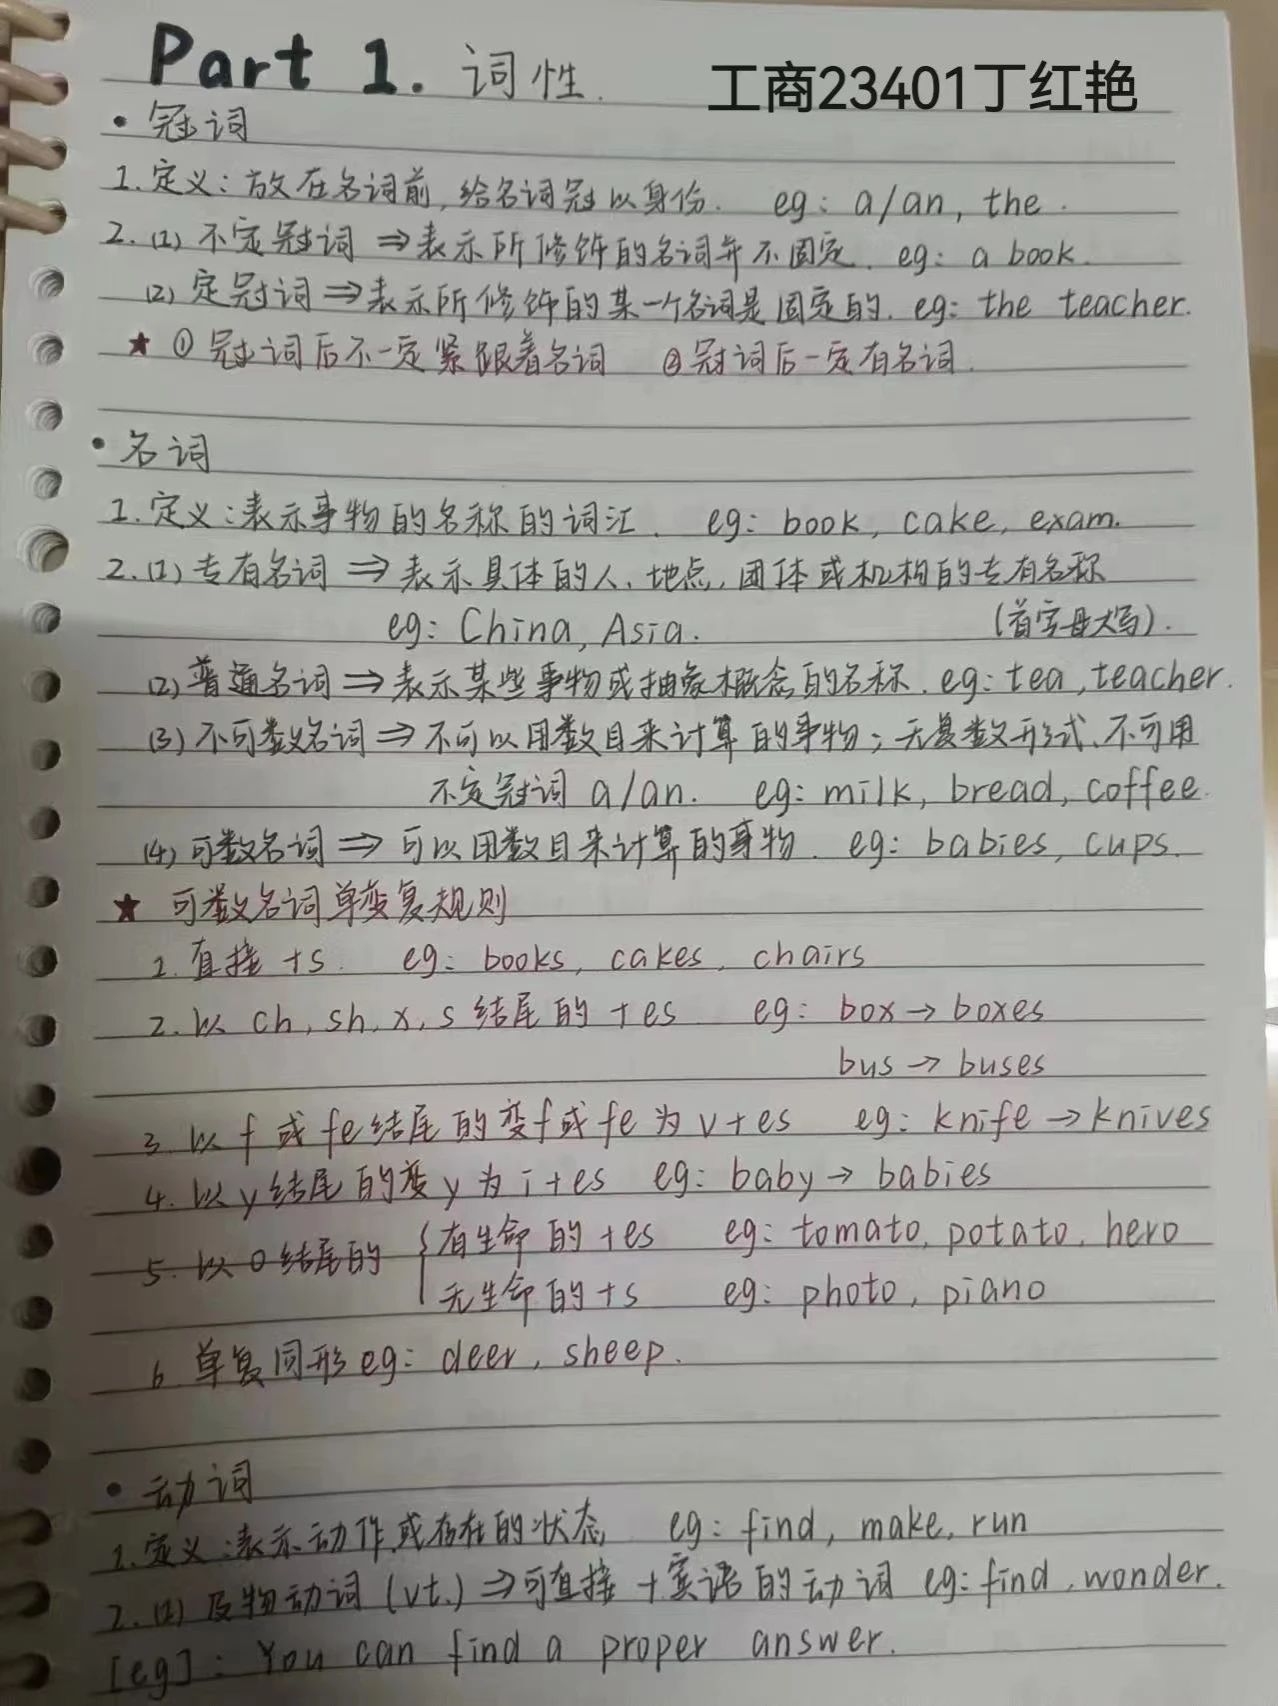 Part 1. 词性.
工商23401丁红艳
• 冠词
1.定义:放在名词前,给名词冠以身份. eg: a/an, the.
2.(1) 不定冠词 ⇒ 表示所修饰的名词并不固定. eg: a book.
(2) 定冠词 ⇒ 表示所修饰的某一个名词是固定的. eg: the teacher.
★ ① 冠词后不一定紧跟着名词 ② 冠词后一定有名词.
• 名词
1.定义:表示事物的名称的词汇. eg: book, cake, exam.
2.(1) 专有名词 ⇒ 表示具体的人、地点、团体或机构的专有名称
eg: China, Asia. (首字母大写).
(2) 普通名词 ⇒ 表示某些事物或抽象概念的名称. eg: tea, teacher.
(3) 不可数名词 ⇒ 不可以用数目来计算的事物;无复数形式、不可用
不定冠词 a/an. eg: milk, bread, coffee.
(4) 可数名词 ⇒ 可以用数目来计算的事物. eg: babies, cups.
★ 可数名词单变复规则
1. 直接 +s. eg: books, cakes, chairs
2. 以 ch, sh, x, s 结尾的 +es eg: box → boxes
bus → buses
3. 以 f 或 fe 结尾的变 f 或 fe 为 v+es eg: knife → knives
4. 以 y 结尾的变 y 为 i+es eg: baby → babies
5. 以 o 结尾的 { 有生命的 +es eg: tomato, potato, hero
无生命的 +s eg: photo, piano
6. 单复同形 eg: deer, sheep.
• 动词
1.定义:表示动作或存在的状态 eg: find, make, run
2.(1) 及物动词 (vt.) ⇒ 可直接 + 宾语的动词 eg: find, wonder.
[eg]: You can find a proper answer.